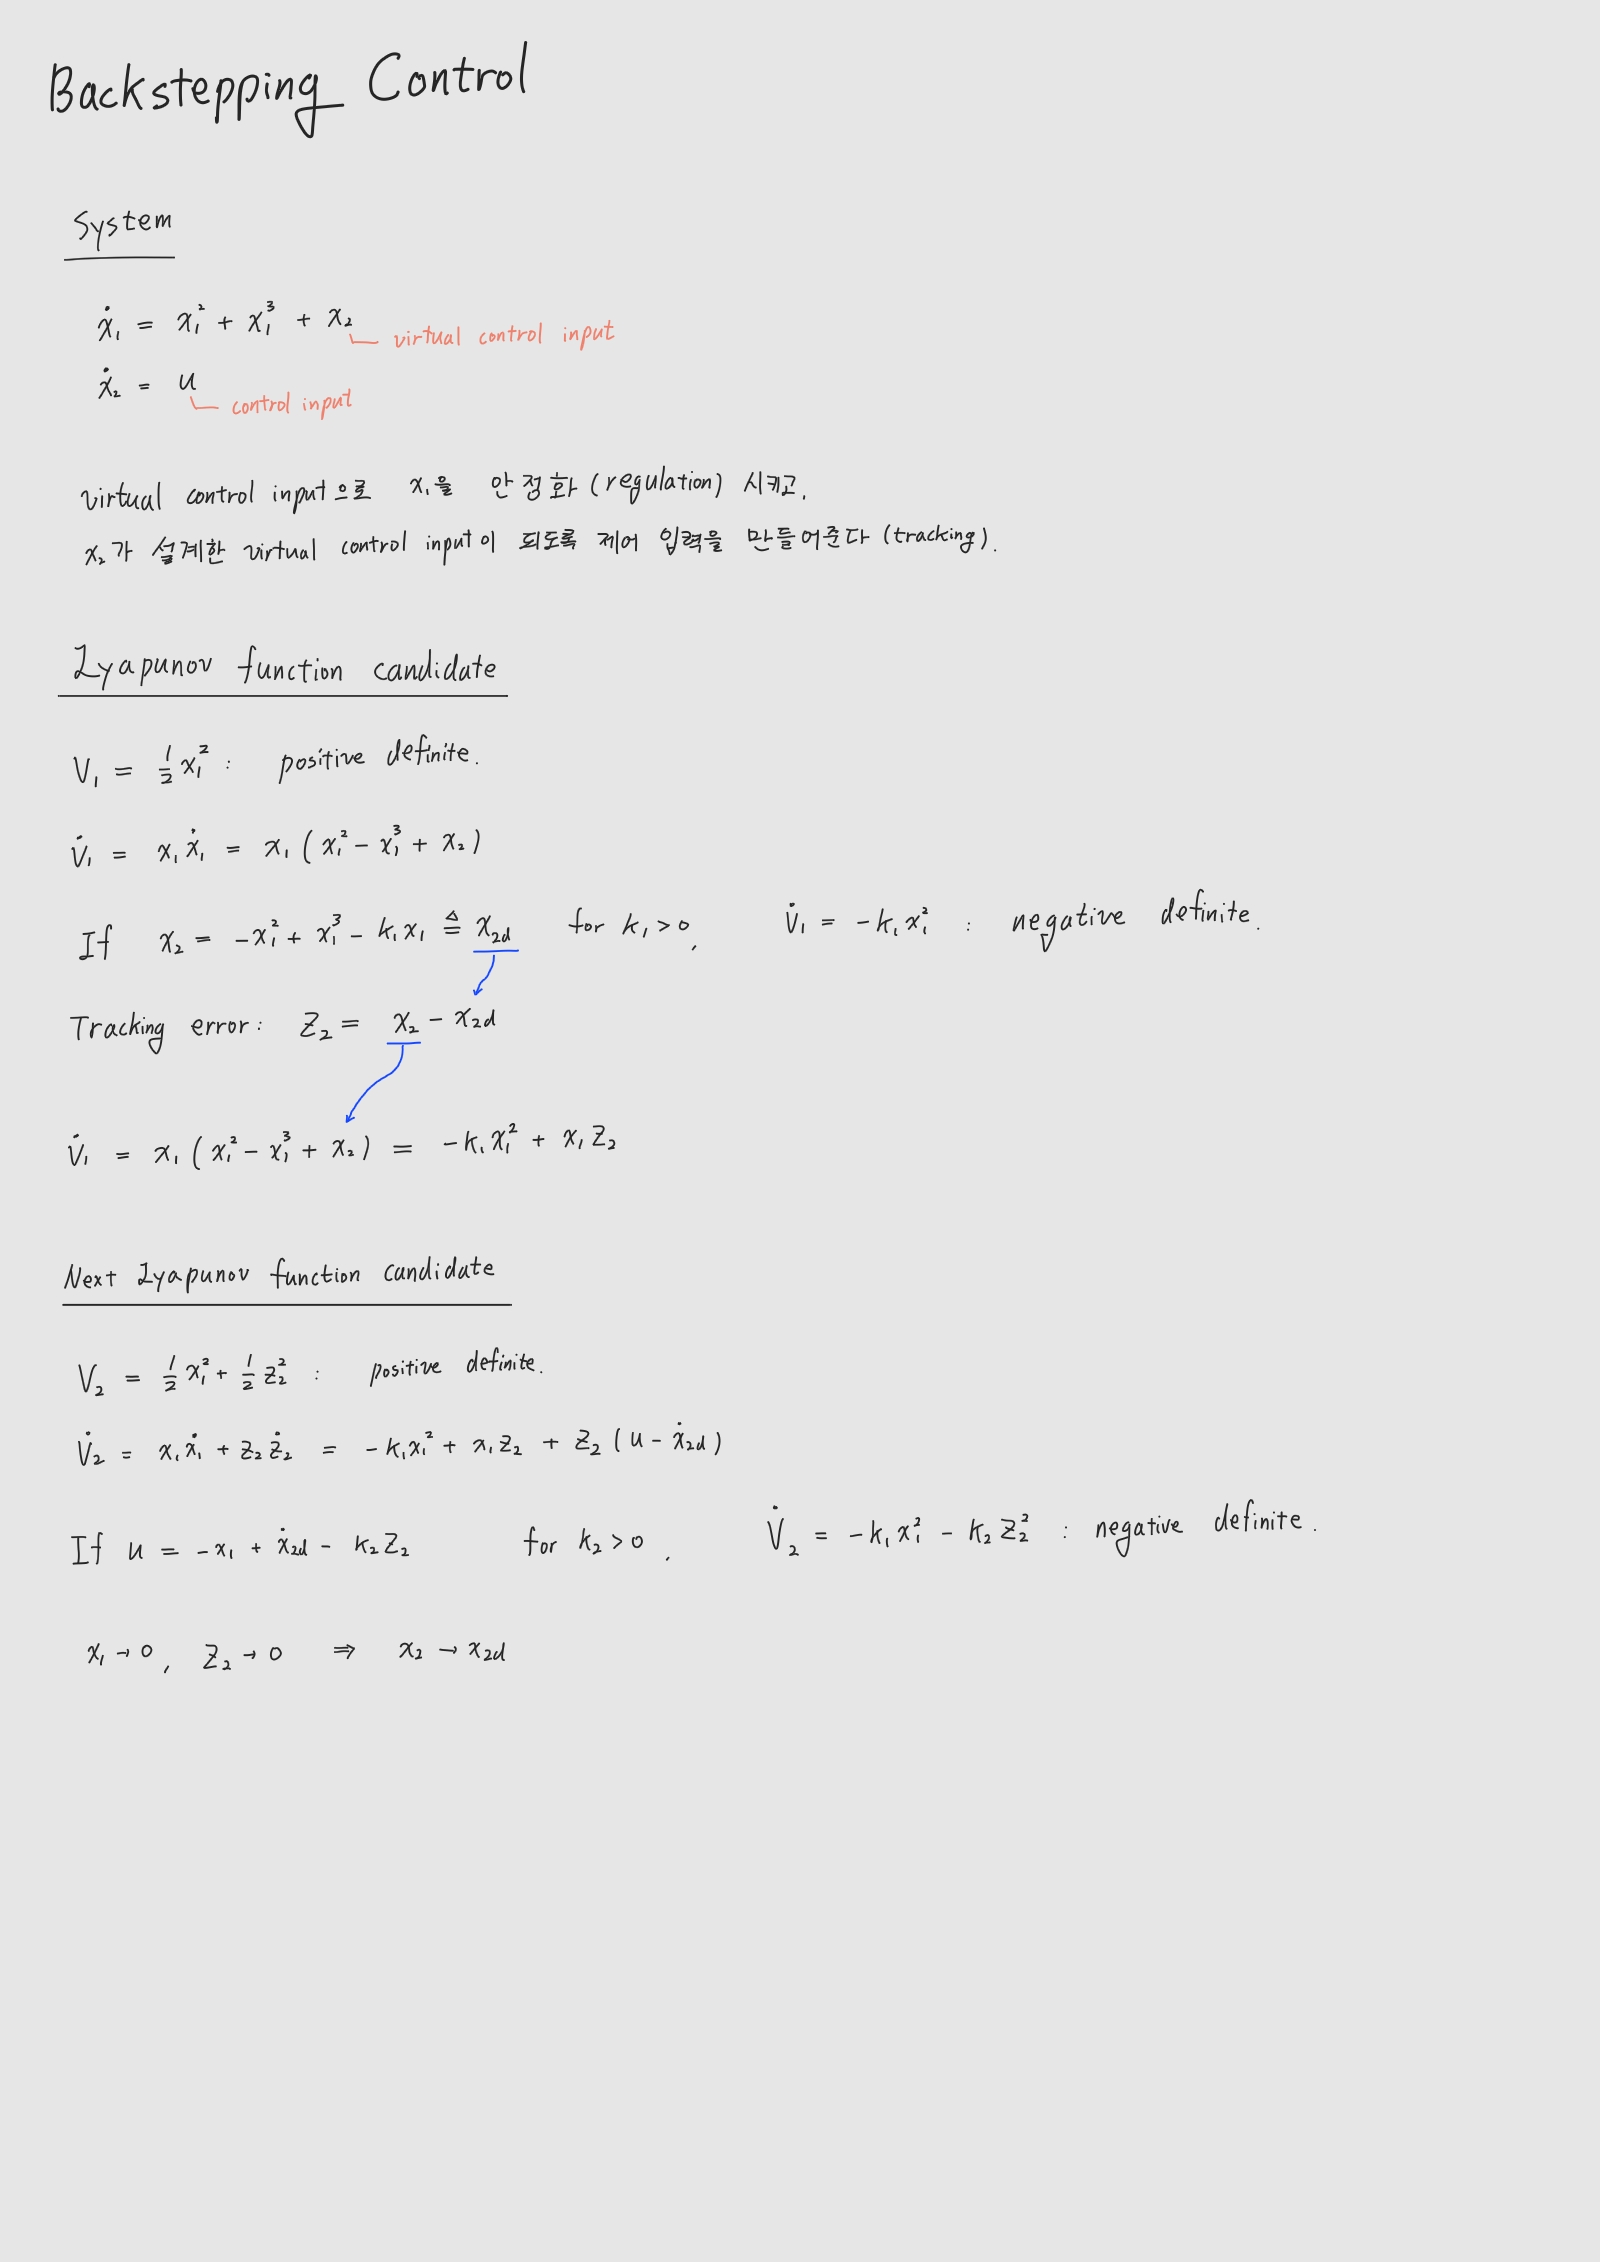 Backstepping Control
System
ẋ₁ = x₁² + x₁³ + x₂
virtual control input
ẋ₂ = u
control input
virtual control input으로 x₁을 안정화 (regulation) 시키고,
x₂가 설계한 virtual control input이 되도록 제어 입력을 만들어준다 (tracking).
Lyapunov function candidate
V₁ = ½ x₁² : positive definite.
V̇₁ = x₁ẋ₁ = x₁ ( x₁² - x₁³ + x₂ )
If x₂ = -x₁² + x₁³ - k₁x₁ ≜ x₂d for k₁ > 0, V̇₁ = -k₁x₁² : negative definite.
Tracking error: z₂ = x₂ - x₂d
V̇₁ = x₁ ( x₁² - x₁³ + x₂ ) = -k₁x₁² + x₁z₂
Next Lyapunov function candidate
V₂ = ½ x₁² + ½ z₂² : positive definite.
V̇₂ = x₁ẋ₁ + z₂ż₂ = -k₁x₁² + x₁z₂ + z₂ ( u - ẋ₂d )
If u = -x₁ + ẋ₂d - k₂z₂ for k₂ > 0, V̇₂ = -k₁x₁² - k₂z₂² : negative definite.
x₁ → 0, z₂ → 0 ⇒ x₂ → x₂d